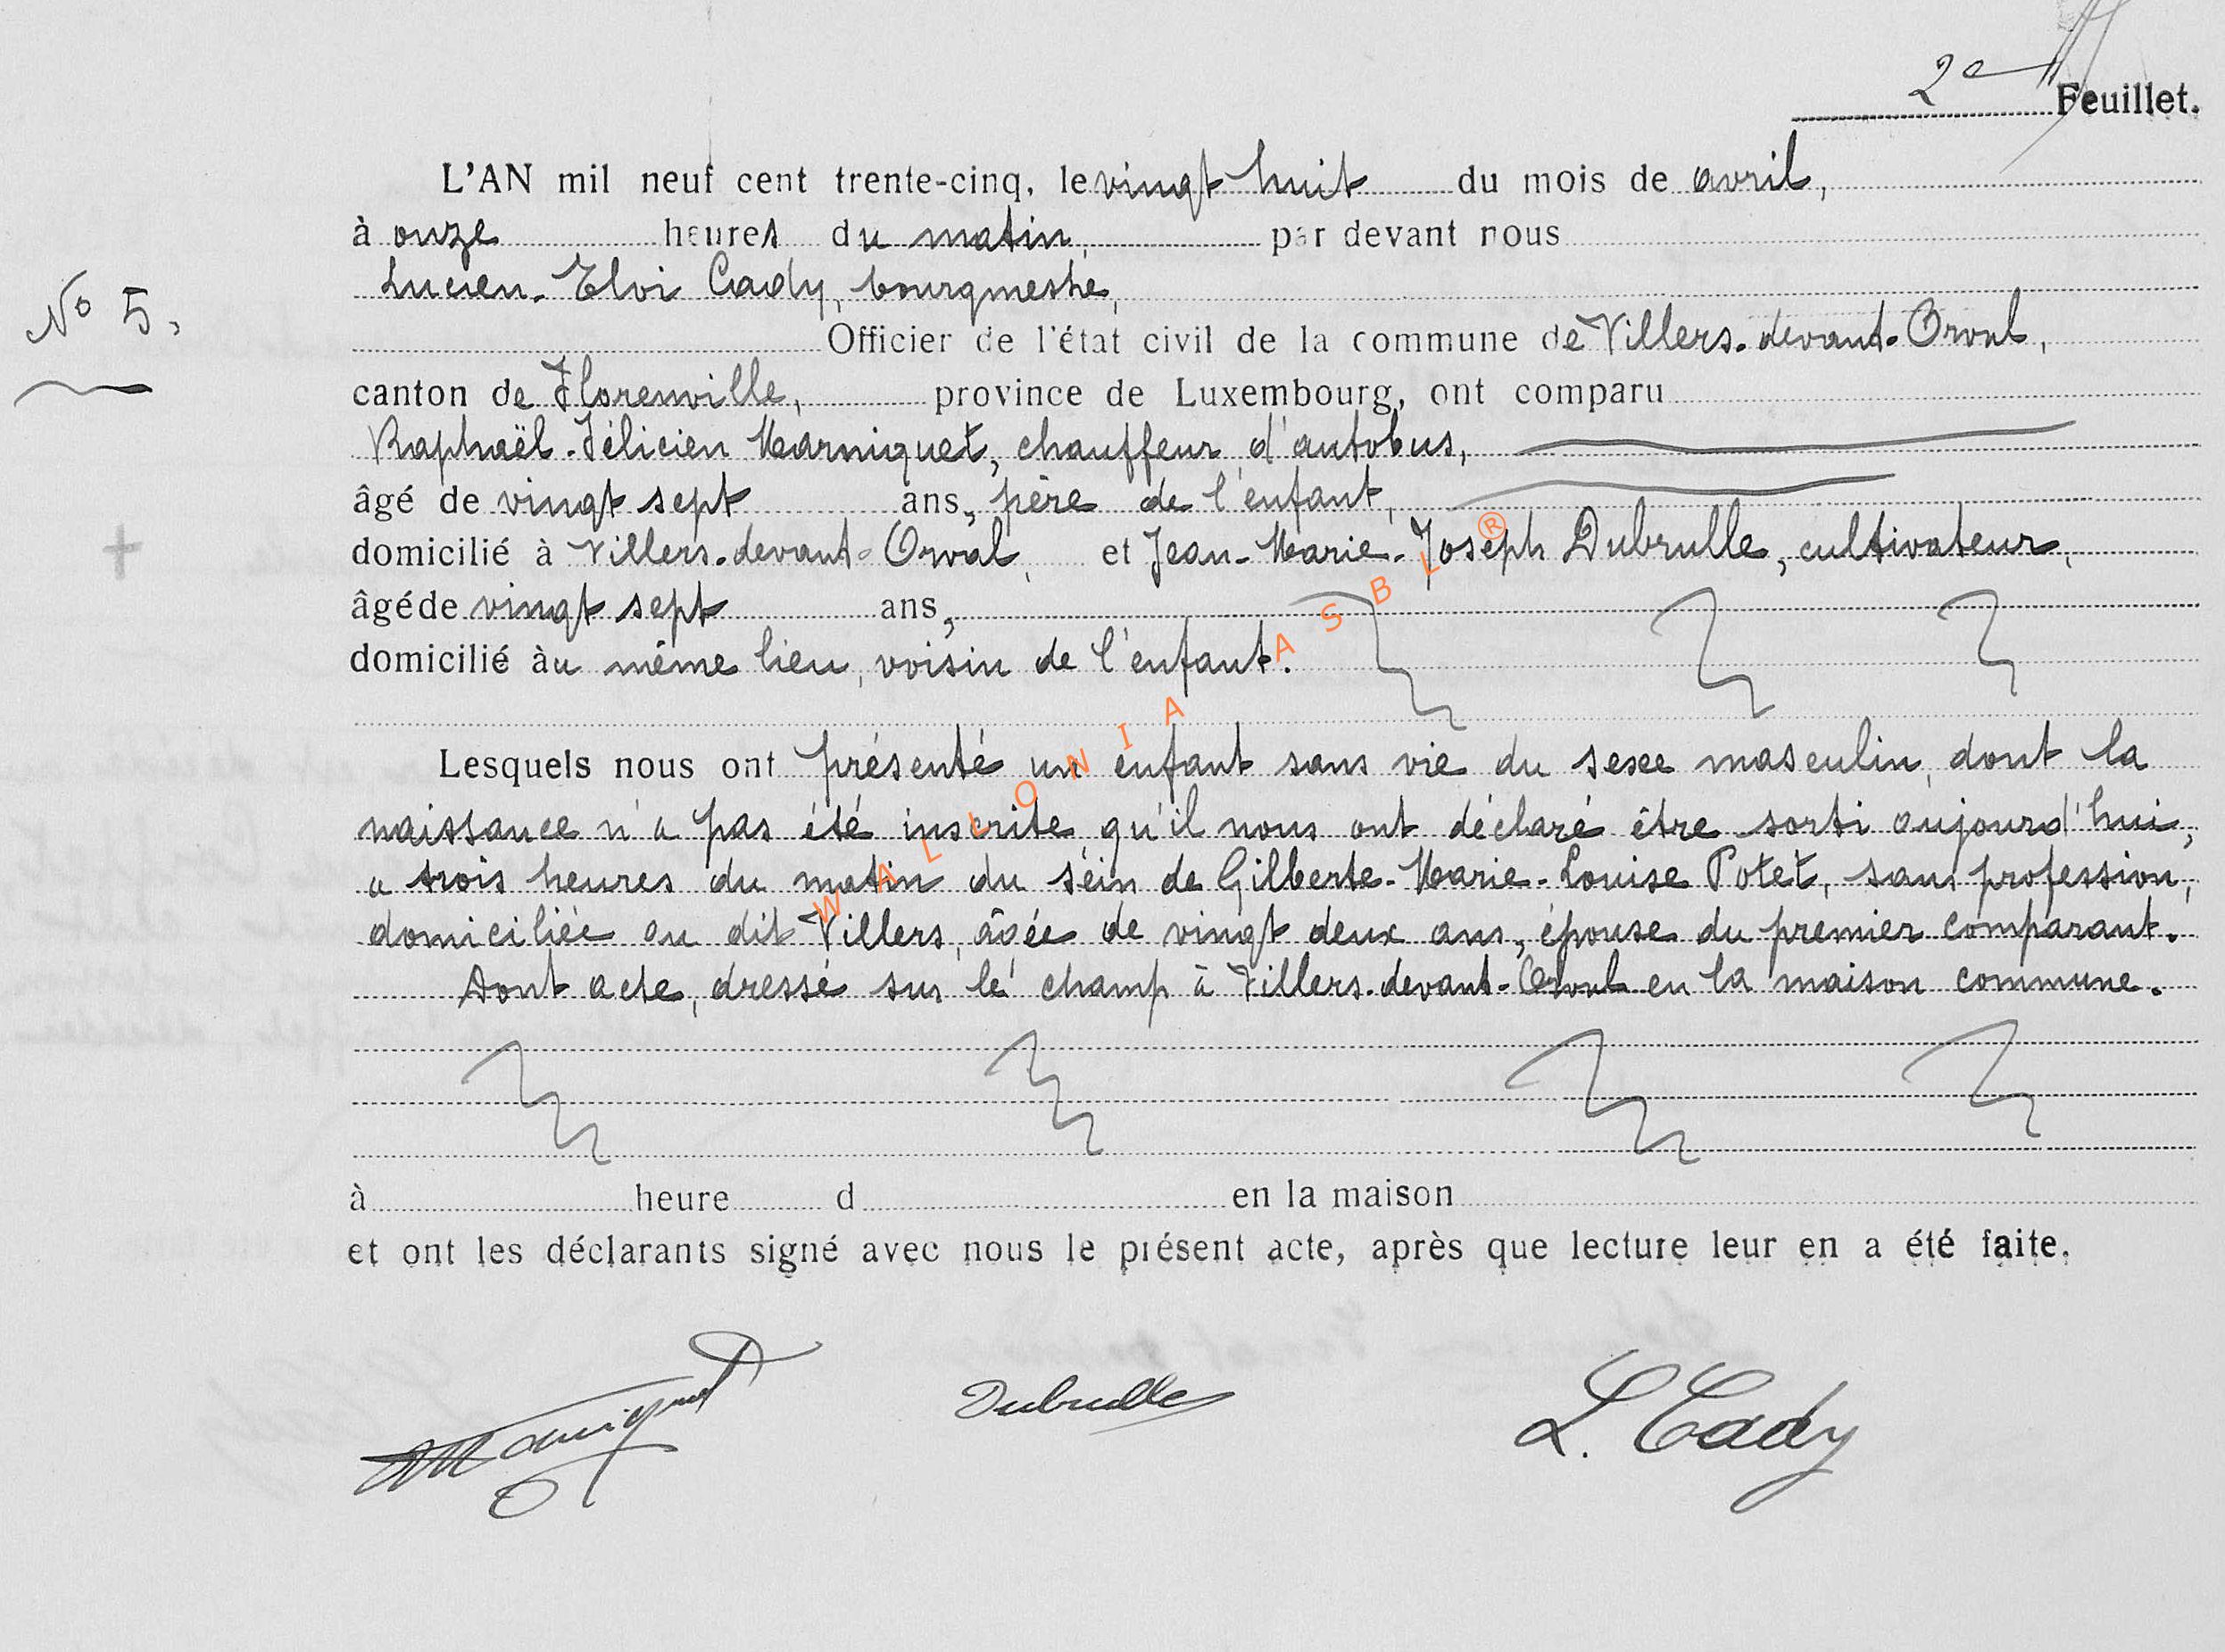 2e Feuillet.
L'AN mil neuf cent trente-cinq, le vingt huit du mois de avril,
à onze heures du matin, par devant nous
Lucien-Eloi Cady, bourgmestre,
N° 5,
Officier de l'état civil de la commune de Villers-devant-Orval,
canton de Florenville, province de Luxembourg, ont comparu
Raphaël-Félicien Marniquet, chauffeur d'autobus,
âgé de vingt sept ans, père de l'enfant,
domicilié à Villers-devant-Orval, et Jean-Marie-Joseph Dubrulle, cultivateur,
âgé de vingt sept ans,
domicilié àu même lieu, voisin de l'enfant.
Lesquels nous ont présenté un enfant sans vie du sexe masculin, dont la
naissance n'a pas été inscrite, qu'il nous ont déclaré être sorti aujourd'hui,
a trois heures du matin du sein de Gilberte-Marie-Louise Potet, sans profession,
domiciliée au dit Villers, âgée de vingt deux ans, épouse du premier comparant.
Dont acte, dressé sur le champ à Villers-devant-Orval en la maison commune.
à heure d en la maison
et ont les déclarants signé avec nous le présent acte, après que lecture leur en a été faite.
Marniquet Dubrulle L. Cady
WALLONIA ASBL ®